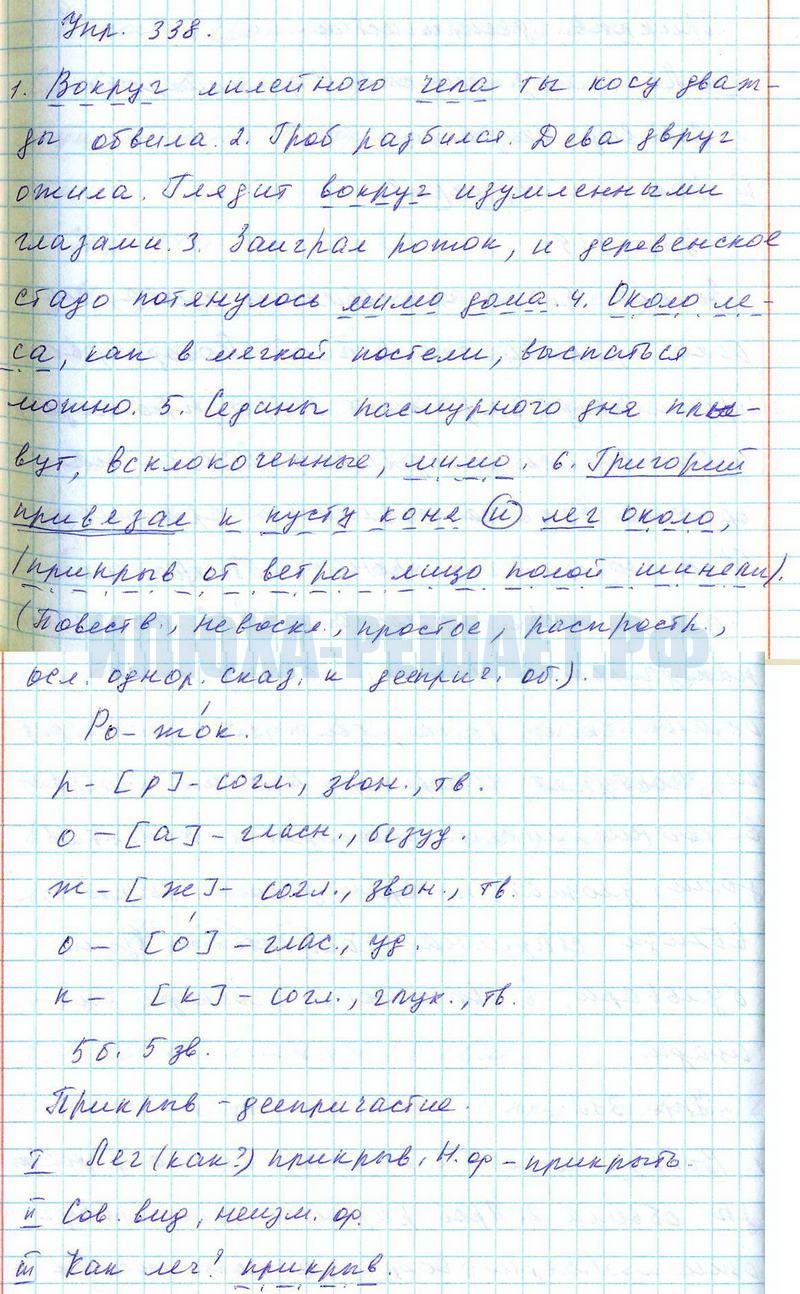 Упр. 338.
1. Вокруг лилейного чела ты косу дваж-
ды обвила. 2. Гроб разбился. Дева вдруг
ожила. Глядит вокруг изумленными
глазами. 3. Заиграл рожок, и деревенское
стадо потянулось мимо дома. 4. Около ле-
са, как в мягкой постели, выспаться
можно. 5. Седины пасмурного дня плы-
вут, всклокоченные, мимо. 6. Григорий
привязал к кусту коня и лег около,
прикрыв от ветра лицо полой шинели).
(Повеств., невоскл., простое, распростр.,
осл. однор. сказ. и дееприч. об.).
ШКОЛА-РЕШАЕТ.РФ
Ро-жо́к.
р - [р] - согл., звон., тв.
о - [а] - гласн., безуд.
ж - [ж] - согл., звон., тв.
о - [о́] - глас., уд.
к - [к] - согл., глух., тв.
5 б. 5 зв.
Прикрыв - деепричастие.
I Лег (как?) прикрыв, Н. ф - прикрыть.
II Сов. вид, неизм. ф.
III Как лег? прикрыв.